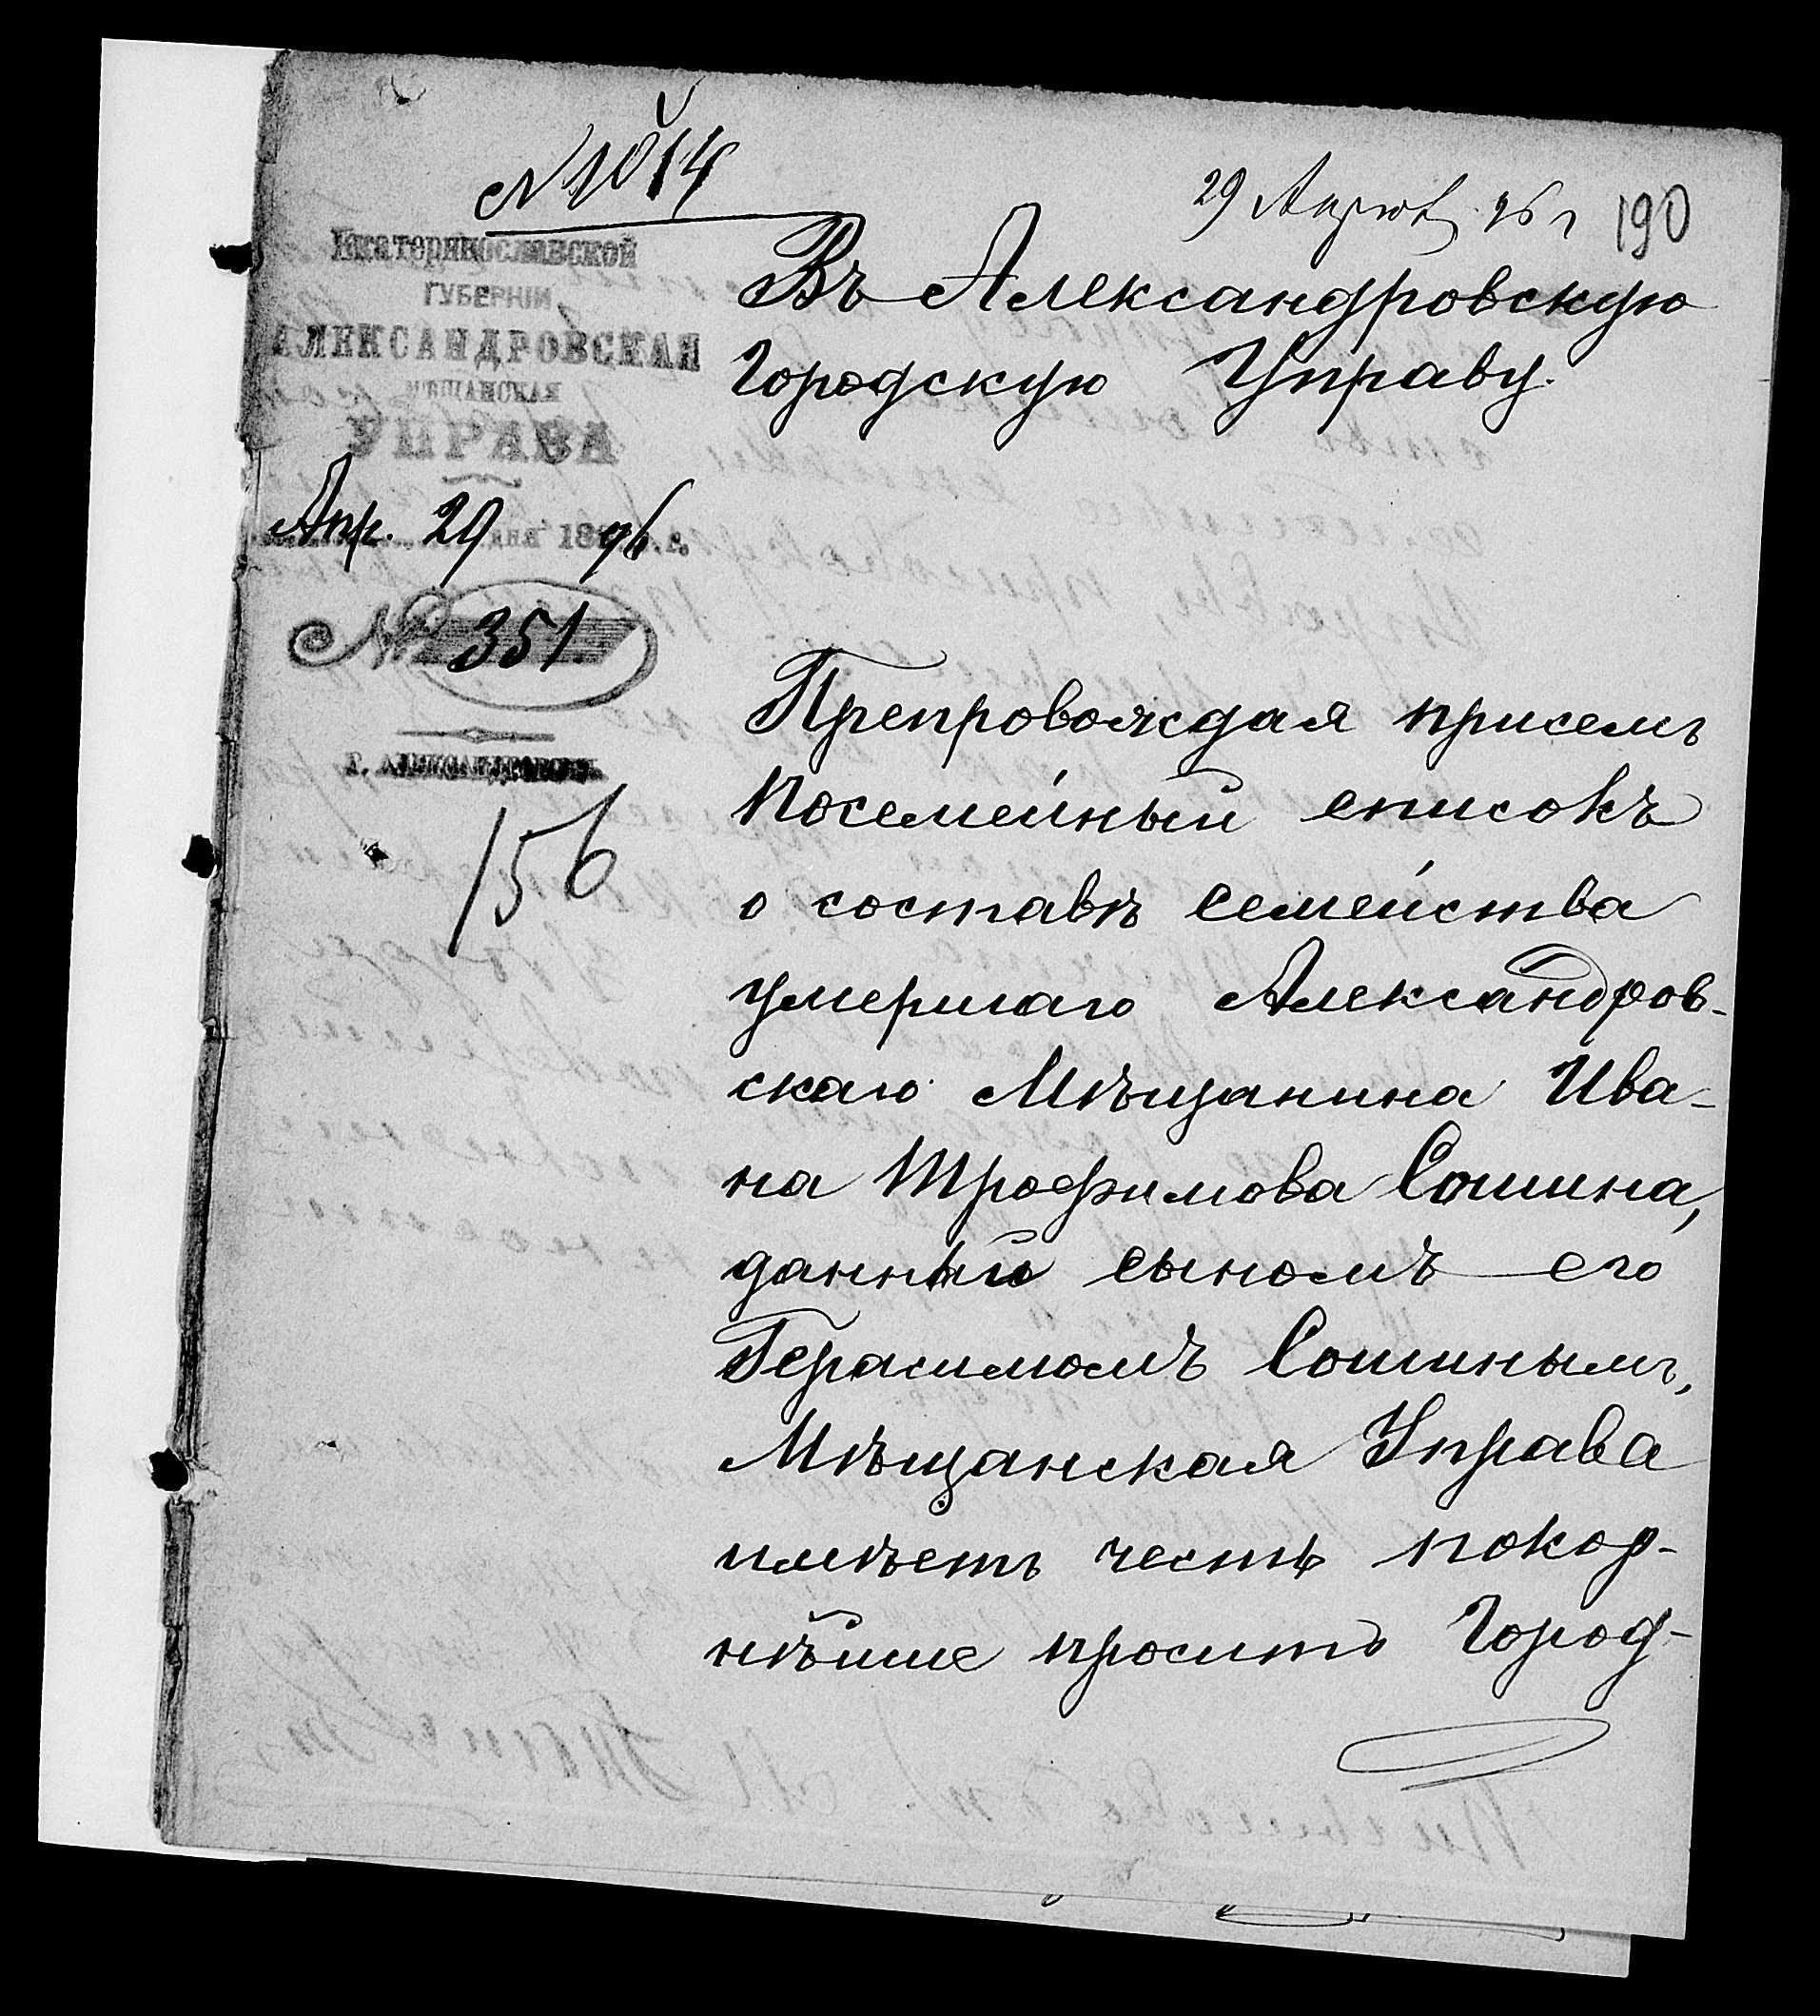 № 1014
29 Апреля 96 г
190
Екатеринославской
ГУБЕРНІИ
АЛЕКСАНДРОВСКАЯ
МѢЩАНСКАЯ
УПРАВА
Апр. 29 дня 1896 г.
№ 351
Г. АЛЕКСАНДРОВСКЪ
156
Въ Александровскую
Городскую Управу.
Препровождая присемъ
посемейный списокъ
о составѣ семейства
умершаго Александров-
скаго Мѣщанина Ива-
на Трофимова Сошина,
данный сыномъ его
Герасимомъ Сошинымъ,
Мѣщанская Управа
имѣетъ честь покор-
нѣйше просить Город-